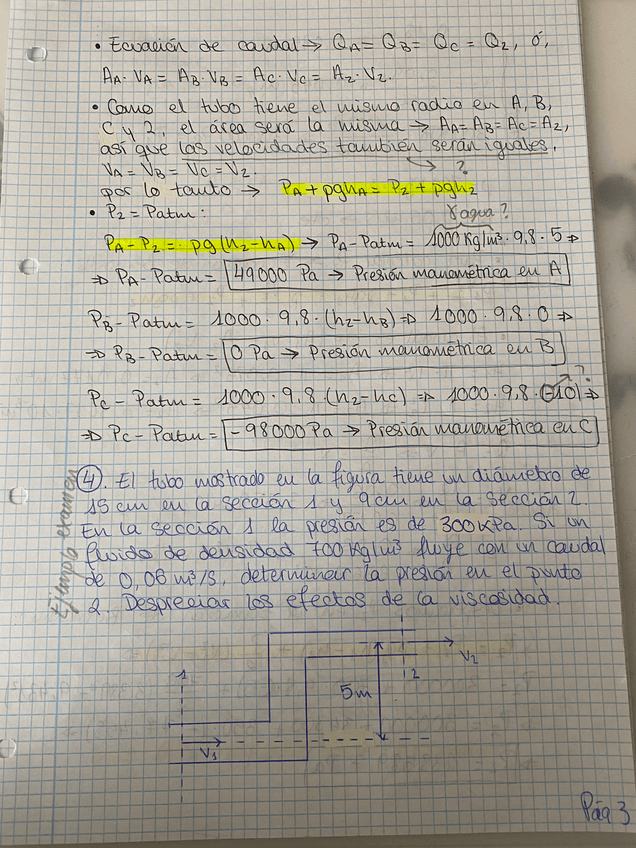 • Ecuación de caudal → QA = QB = QC = Q2, ó,
AA · VA = AB · VB = AC · VC = A2 · V2.
• Como el tubo tiene el mismo radio en A, B,
C y 2, el área será la misma → AA = AB = AC = A2,
así que las velocidades también serán iguales.
VA = VB = VC = V2. ?
por lo tanto → PA + ρghA = P2 + ρgh2
• P2 = Patm : γagua?
PA - P2 = ρg(h2 - hA) → PA - Patm = 1000 Kg/m³ · 9,8 · 5 ⇒
⇒ PA - Patm = 49000 Pa → Presión manométrica en A
PB - Patm = 1000 · 9,8 · (h2 - hB) ⇒ 1000 · 9,8 · 0 ⇒
⇒ PB - Patm = 0 Pa → Presión manométrica en B
?
PC - Patm = 1000 · 9,8 (h2 - hC) ⇒ 1000 · 9,8 · (-10) ⇒
⇒ PC - Patm = -98000 Pa → Presión manométrica en C
Ejemplo examen
4. El tubo mostrado en la figura tiene un diámetro de
15 cm en la sección 1 y 9 cm en la sección 2.
En la sección 1 la presión es de 300 kPa. Si un
fluido de densidad 700 Kg/m³ fluye con un caudal
de 0,06 m³/s, determinar la presión en el punto
2. Despreciar los efectos de la viscosidad.
1
V2
2
5m
V1
Pág 3